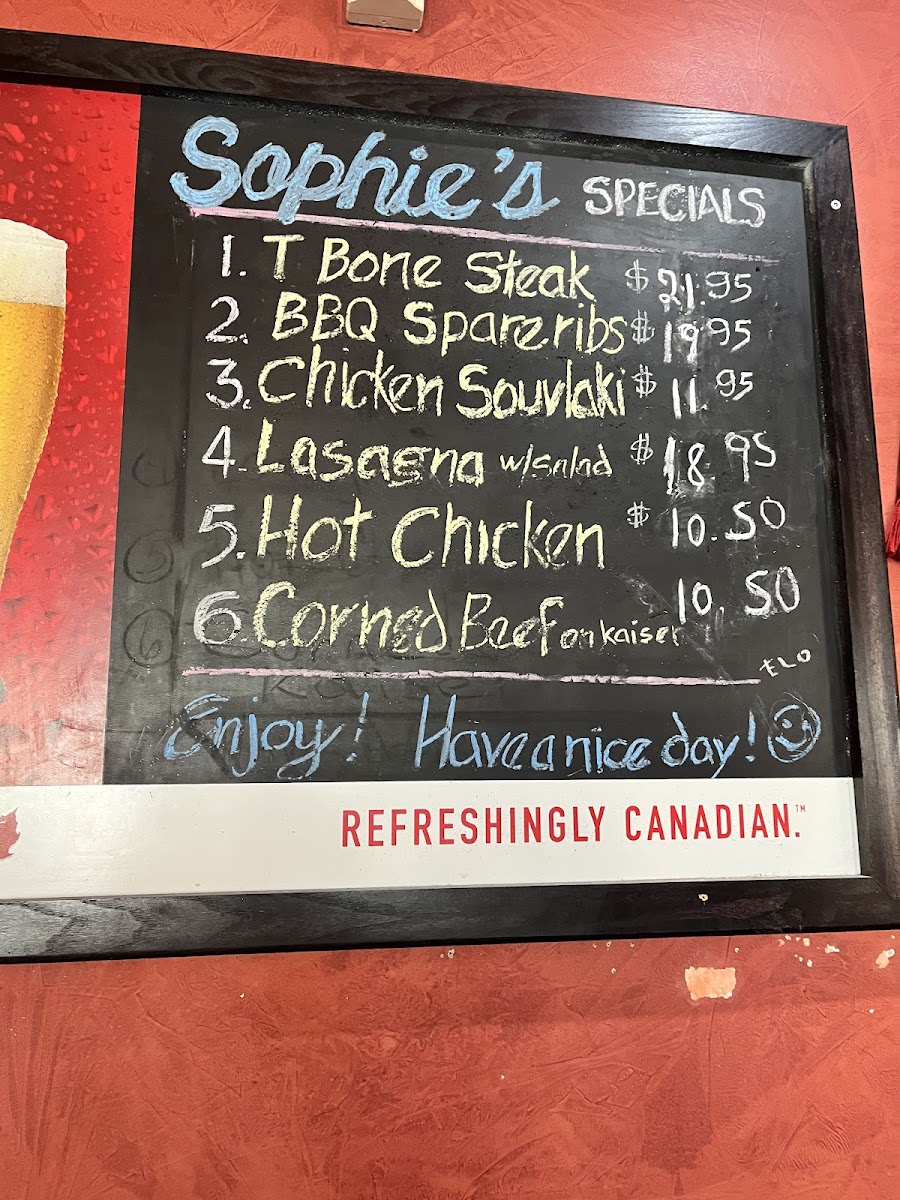 Sophie's SPECIALS
1. T Bone Steak $ 21.95
2. BBQ Spareribs $ 19.95
3. Chicken Souvlaki $ 11.95
4. Lasagna w/salad $ 18.95
5. Hot Chicken $ 10.50
6. Corned Beef on kaiser 10.50
Enjoy! Have a nice day!
REFRESHINGLY CANADIAN.™